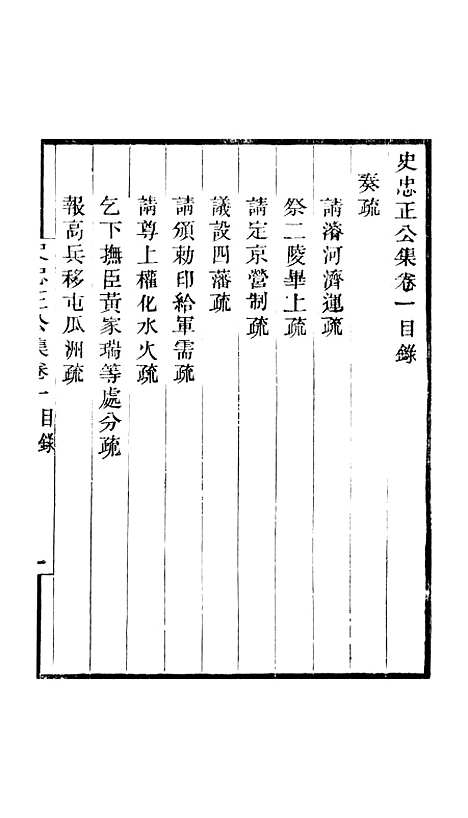 史忠正公集卷一目錄
奏疏
請濬河濟運疏
祭二陵畢上疏
請定京營制疏
議設四藩疏
請頒勅印給軍需疏
請尊上權化水火疏
乞下撫臣黃家瑞等處分疏
報高兵移屯瓜洲疏
史忠正公集卷一目錄
一